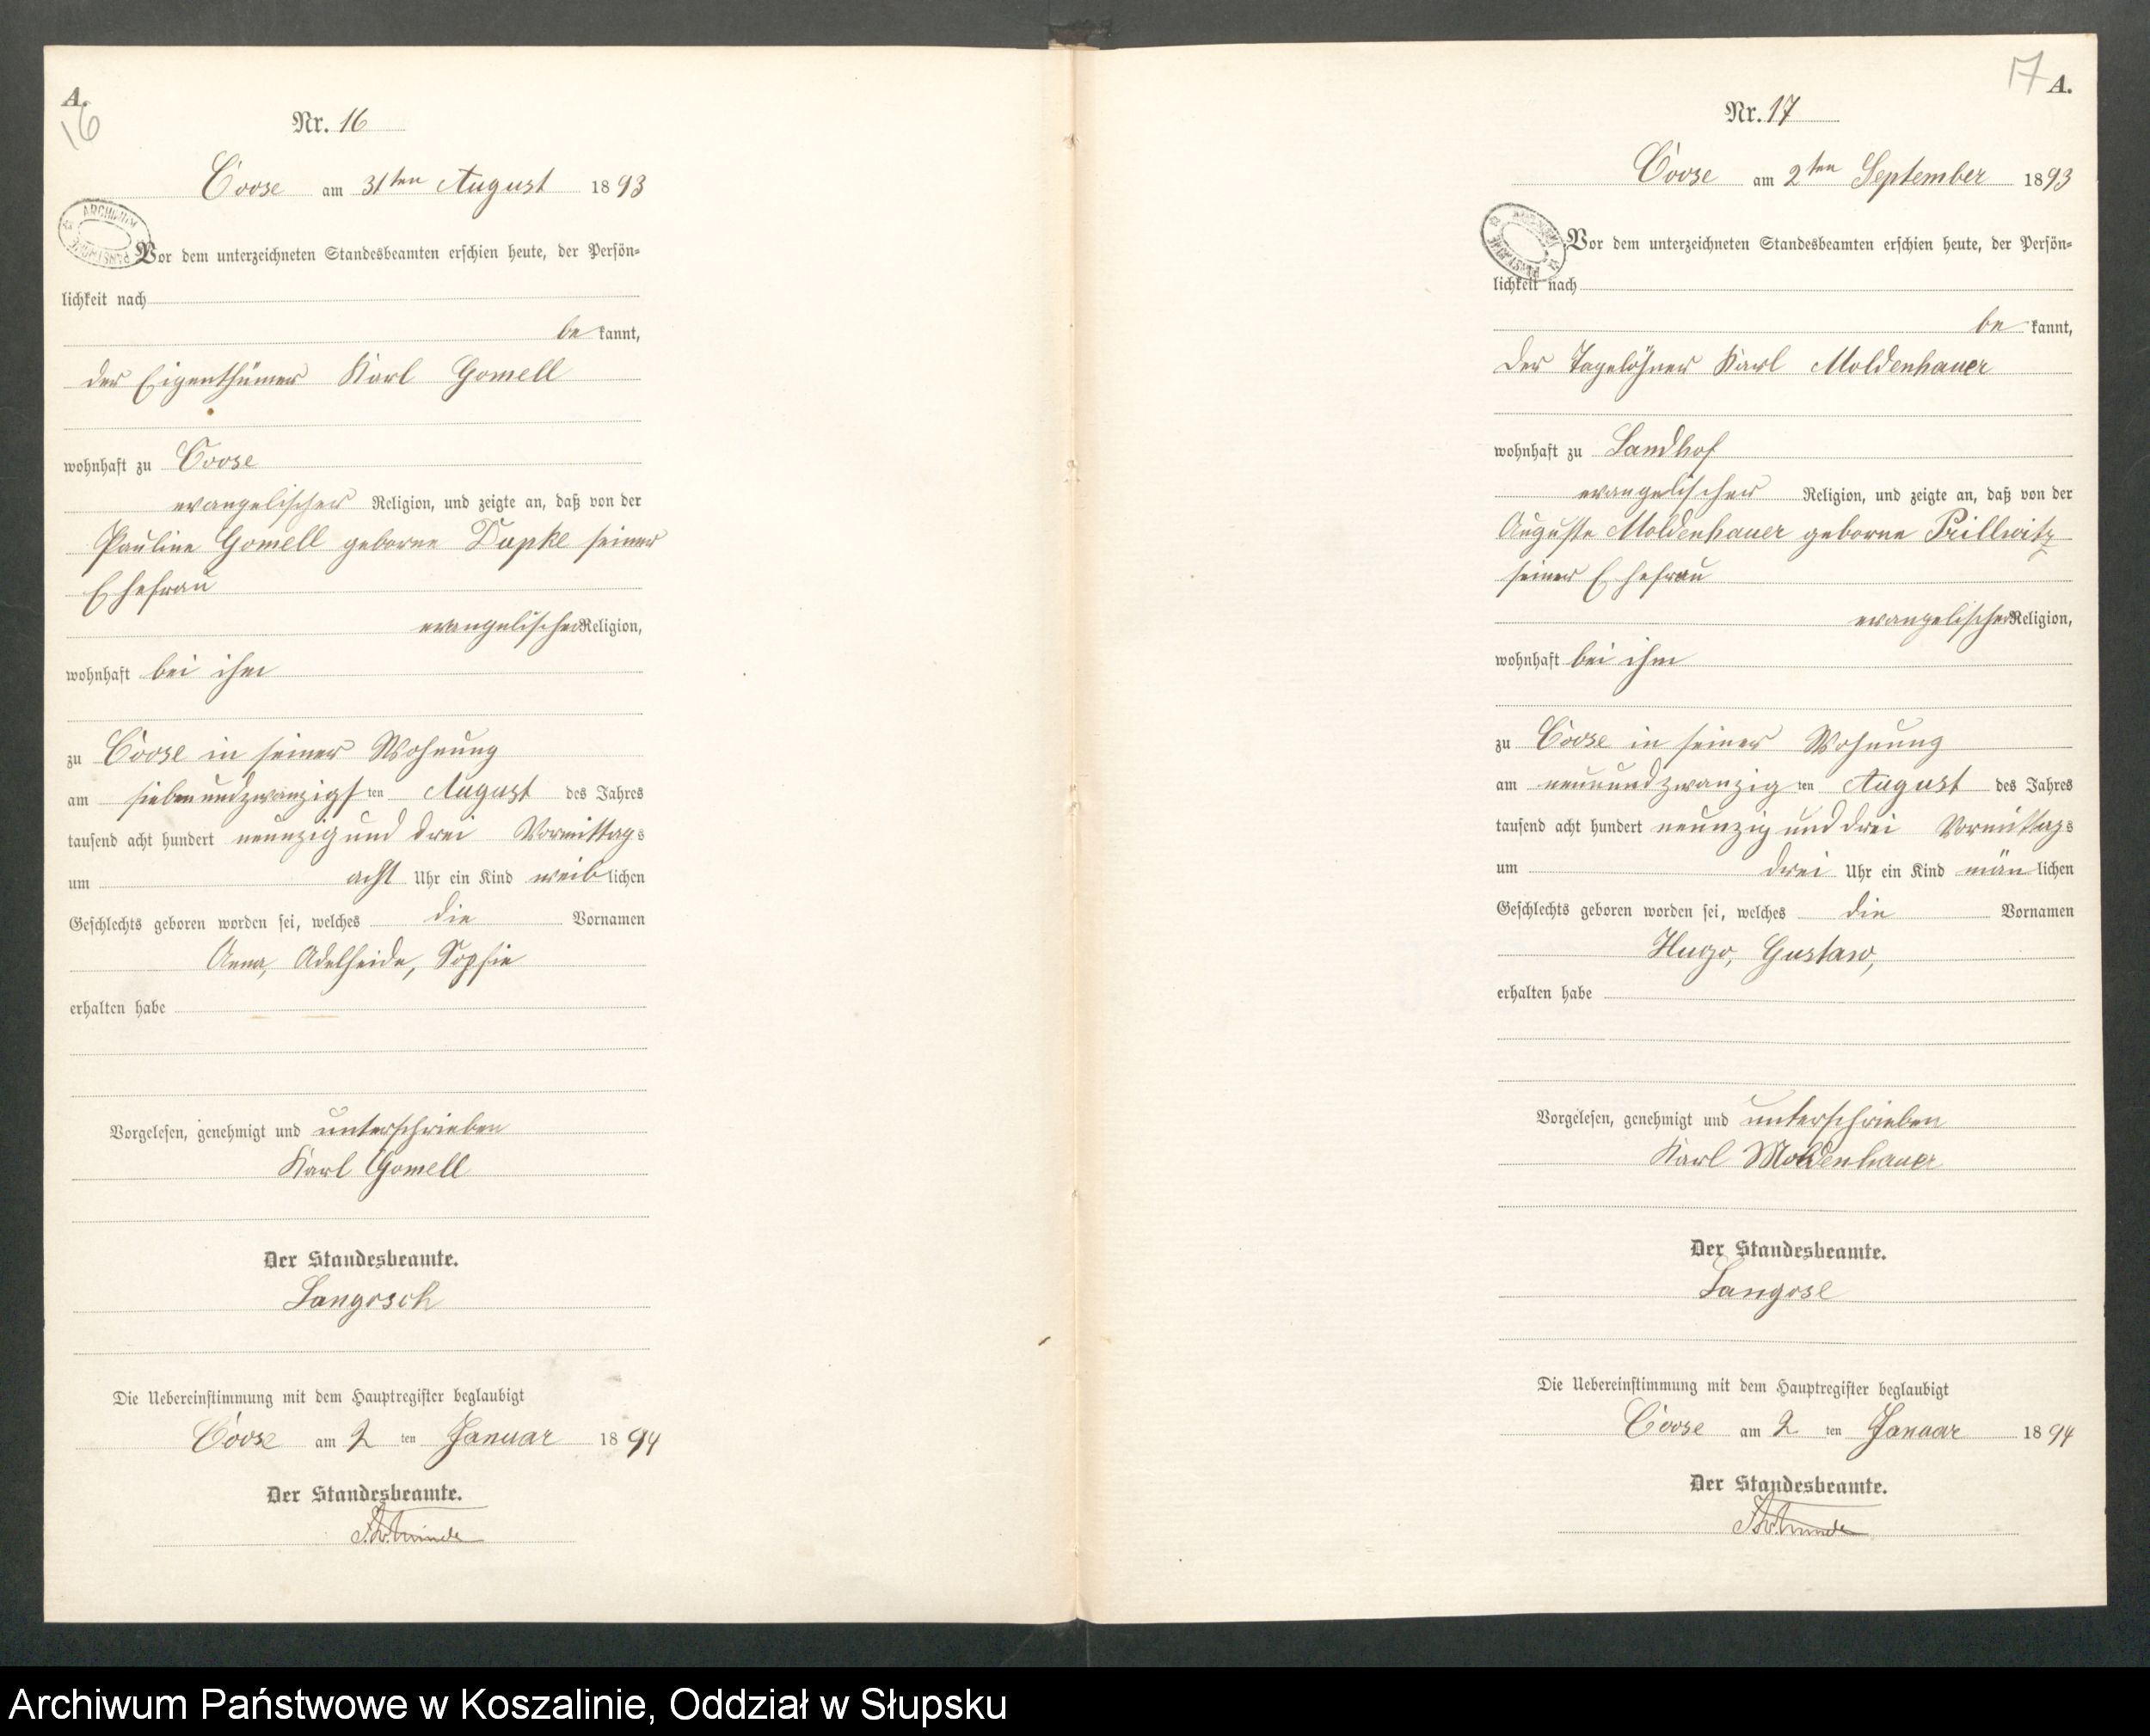 A.
16
Nr. 16
Coose am 31ten August 1893
ARCHIWUM PAŃSTWOWE
Vor dem unterzeichneten Standesbeamten erschien heute, der Persön=
lichkeit nach
be kannt,
der Eigenthümer Karl Gomell
wohnhaft zu Coose
evangelischer Religion, und zeigte an, daß von der
Pauline Gomell geborne Dupke seiner
Ehefrau
evangelischer Religion,
wohnhaft bei ihm
zu Coose in seiner Wohnung
am siebenundzwanzigsten August des Jahres
tausend acht hundert neunzig und drei Vormittags
um acht Uhr ein Kind weiblichen
Geschlechts geboren worden sei, welches die Vornamen
Anna, Adelheide, Sophie
erhalten habe
Vorgelesen, genehmigt und unterschrieben
Karl Gomell
Der Standesbeamte.
Langosch
Die Uebereinstimmung mit dem Hauptregister beglaubigt
Coose am 2 ten Januar 1894
Der Standesbeamte.
17 A.
Nr. 17
Coose am 2ten September 1893
ARCHIWUM PAŃSTWOWE
Vor dem unterzeichneten Standesbeamten erschien heute, der Persön=
lichkeit nach
be kannt,
der Tagelöhner Karl Moldenhauer
wohnhaft zu Landhof
evangelischer Religion, und zeigte an, daß von der
Auguste Moldenhauer geborne Prillwitz
seiner Ehefrau
evangelischer Religion,
wohnhaft bei ihm
zu Coose in seiner Wohnung
am neunundzwanzig ten August des Jahres
tausend acht hundert neunzig und drei Vormittags
um drei Uhr ein Kind män lichen
Geschlechts geboren worden sei, welches die Vornamen
Hugo, Gustaw,
erhalten habe
Vorgelesen, genehmigt und unterschrieben
Karl Moldenhauer
Der Standesbeamte.
Die Uebereinstimmung mit dem Hauptregister beglaubigt
Coose am 2 ten Januar 1894
Der Standesbeamte.
Archiwum Państwowe w Koszalinie, Oddział w Słupsku